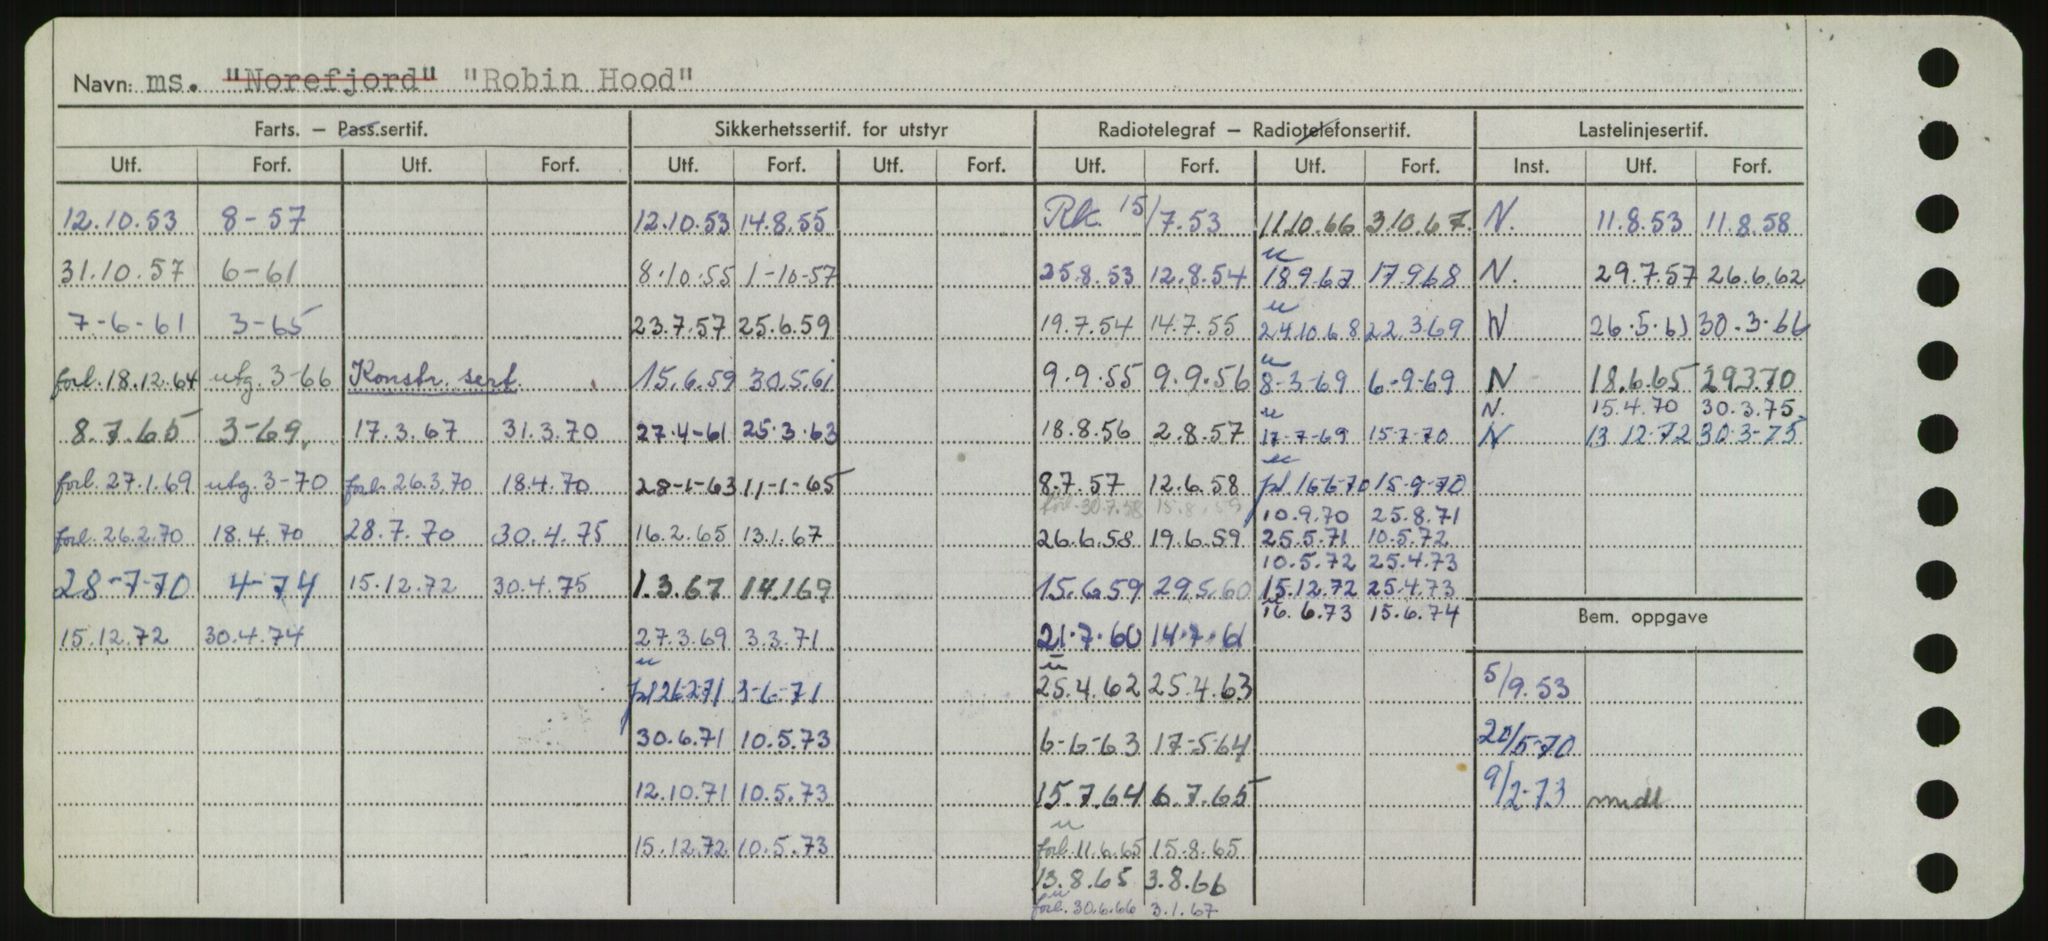 Navn: ms. "Norefjord" "Robin Hood"
Farts. – Pass.sertif. Sikkerhetssertif. for utstyr Radiotelegraf – Radiotelefonsertif. Lastelinjesertif.
Utf. Forf. Utf. Forf. Utf. Forf. Utf. Forf. Utf. Forf. Utf. Forf. Inst. Utf. Forf.
12.10.53 8-57 12.10.53 14.8.55 Rk. 15/7.53 11.10.66 3.10.67. N. 11.8.53 11.8.58
u
31.10.57 6-61 8.10.55 1-10-57 25.8.53 12.8.54 18.9.67 17.9.68 N. 29.7.57 26.6.62
u
7-6-61 3-65 23.7.57 25.6.59 19.7.54 14.7.55 24.10.68 22.3.69 N 26.5.61 30.3.66
u
forl. 18.12.64 utg. 3-66 Konstr. sert. 15.6.59 30.5.61 9.9.55 9.9.56 8-3-69 6-9-69 N 18.6.65 29.3.70
u N. 15.4.70 30.3.75.
8.7.65 3-69. 17.3.67 31.3.70 27.4-61 25.3.63 18.8.56 2.8.57 17-7-69 15-7-70 N 13.12.72 30.3-75
u
forl. 27.1.69 utg. 3-70 forl. 26.3.70 18.4.70 28-1-63 11-1-65 8.7.57 12.6.58 pl 16.6-70 15-9-70
forl. 30.7.58 15.8.59 10.9.70 25.8.71
forl. 26.2.70 18.4.70 28.7.70 30.4.75 16.2.65 13.1.67 26.6.58 19.6.59 25.5.71 10.5.72
10.5.72 25.4.73
28-7-70 4-74 15.12.72 30.4.75 1.3.67 14.1.69 15.6.59 29.5.60 15.12.72 25.4.73
16.6.73 15.6.74
Bem. oppgave
15.12.72 30.4.74 27.3.69 3.3.71 21.7.60 14.7.61
u u
pl 26.2.71 3-6-71 25.4.62 25.4.63 5/9.53
30.6.71 10.5.73 6-6-63 17-5-64 20/5-70
12.10.71 10.5.73 15.7.64 6.7.65 9/2-73 midl
u
15.12.72 10.5.73 forl. 11.6.65 15.8.65
13.8.65 3.8.66
u
forl. 30.6.66 3.1.67